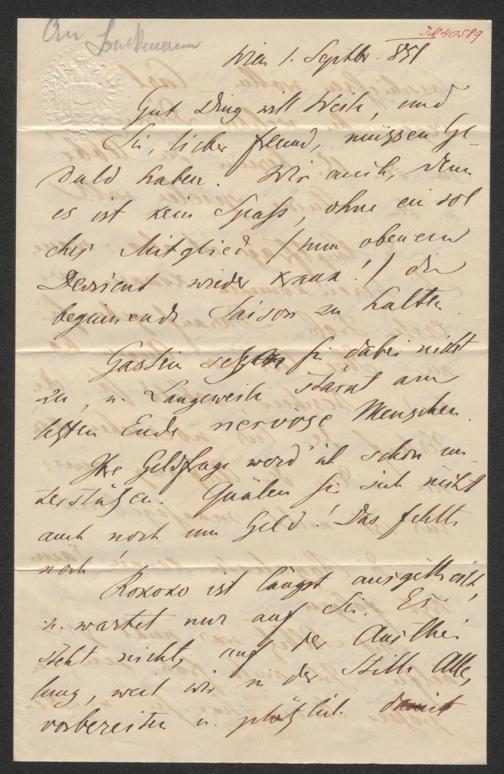 An Lackmann
I.N. 40589
Wien 1. Septbr. 851
Gut Ding will Weile, und
Sie, lieber Freund, müssen Ge-
duld haben. Wir auch, denn
es ist kein Spaß, ohne ein sol
ches Mitglied / nun obenein
Devrient wieder krank! / die
beginnende Saison zu halten.
Gastein Sie dabei nicht
zu, u. Langeweile stärkt am
letzten Ende nervöse Menschen.
Ihre Geldfrage werd' ich schon un-
terstützen. Quälen Sie sich nicht
auch noch um Geld! Das fehlte
noch!
Rokoko ist längst ausgetheilt,
u. wartet nur auf Sie. Es
steht nichts auf der Austhei
lung, weil wir in der Stille Alles
vorbereiten u. plötzlich damit